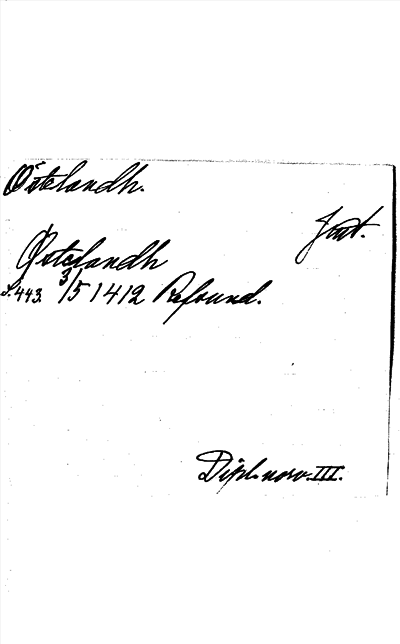 Östelandh.
Jmt.
Østelandh
S. 443. 3/5 1412 Refsund.
Dipl. norv. III.